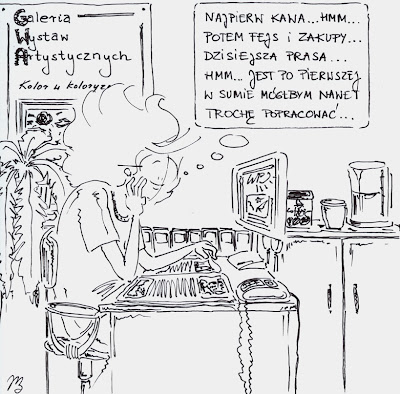 Galeria
Wystaw
Artystycznych
Kolor w
NAJPIERW KAWA...HMM...
POTEM FEJS I ZAKUPY...
DZISIEJSZA PRASA...
HMM... JEST PO PIERWSZEJ
W SUMIE MÓGŁBYM NAWET
TROCHĘ POPRACOWAĆ...